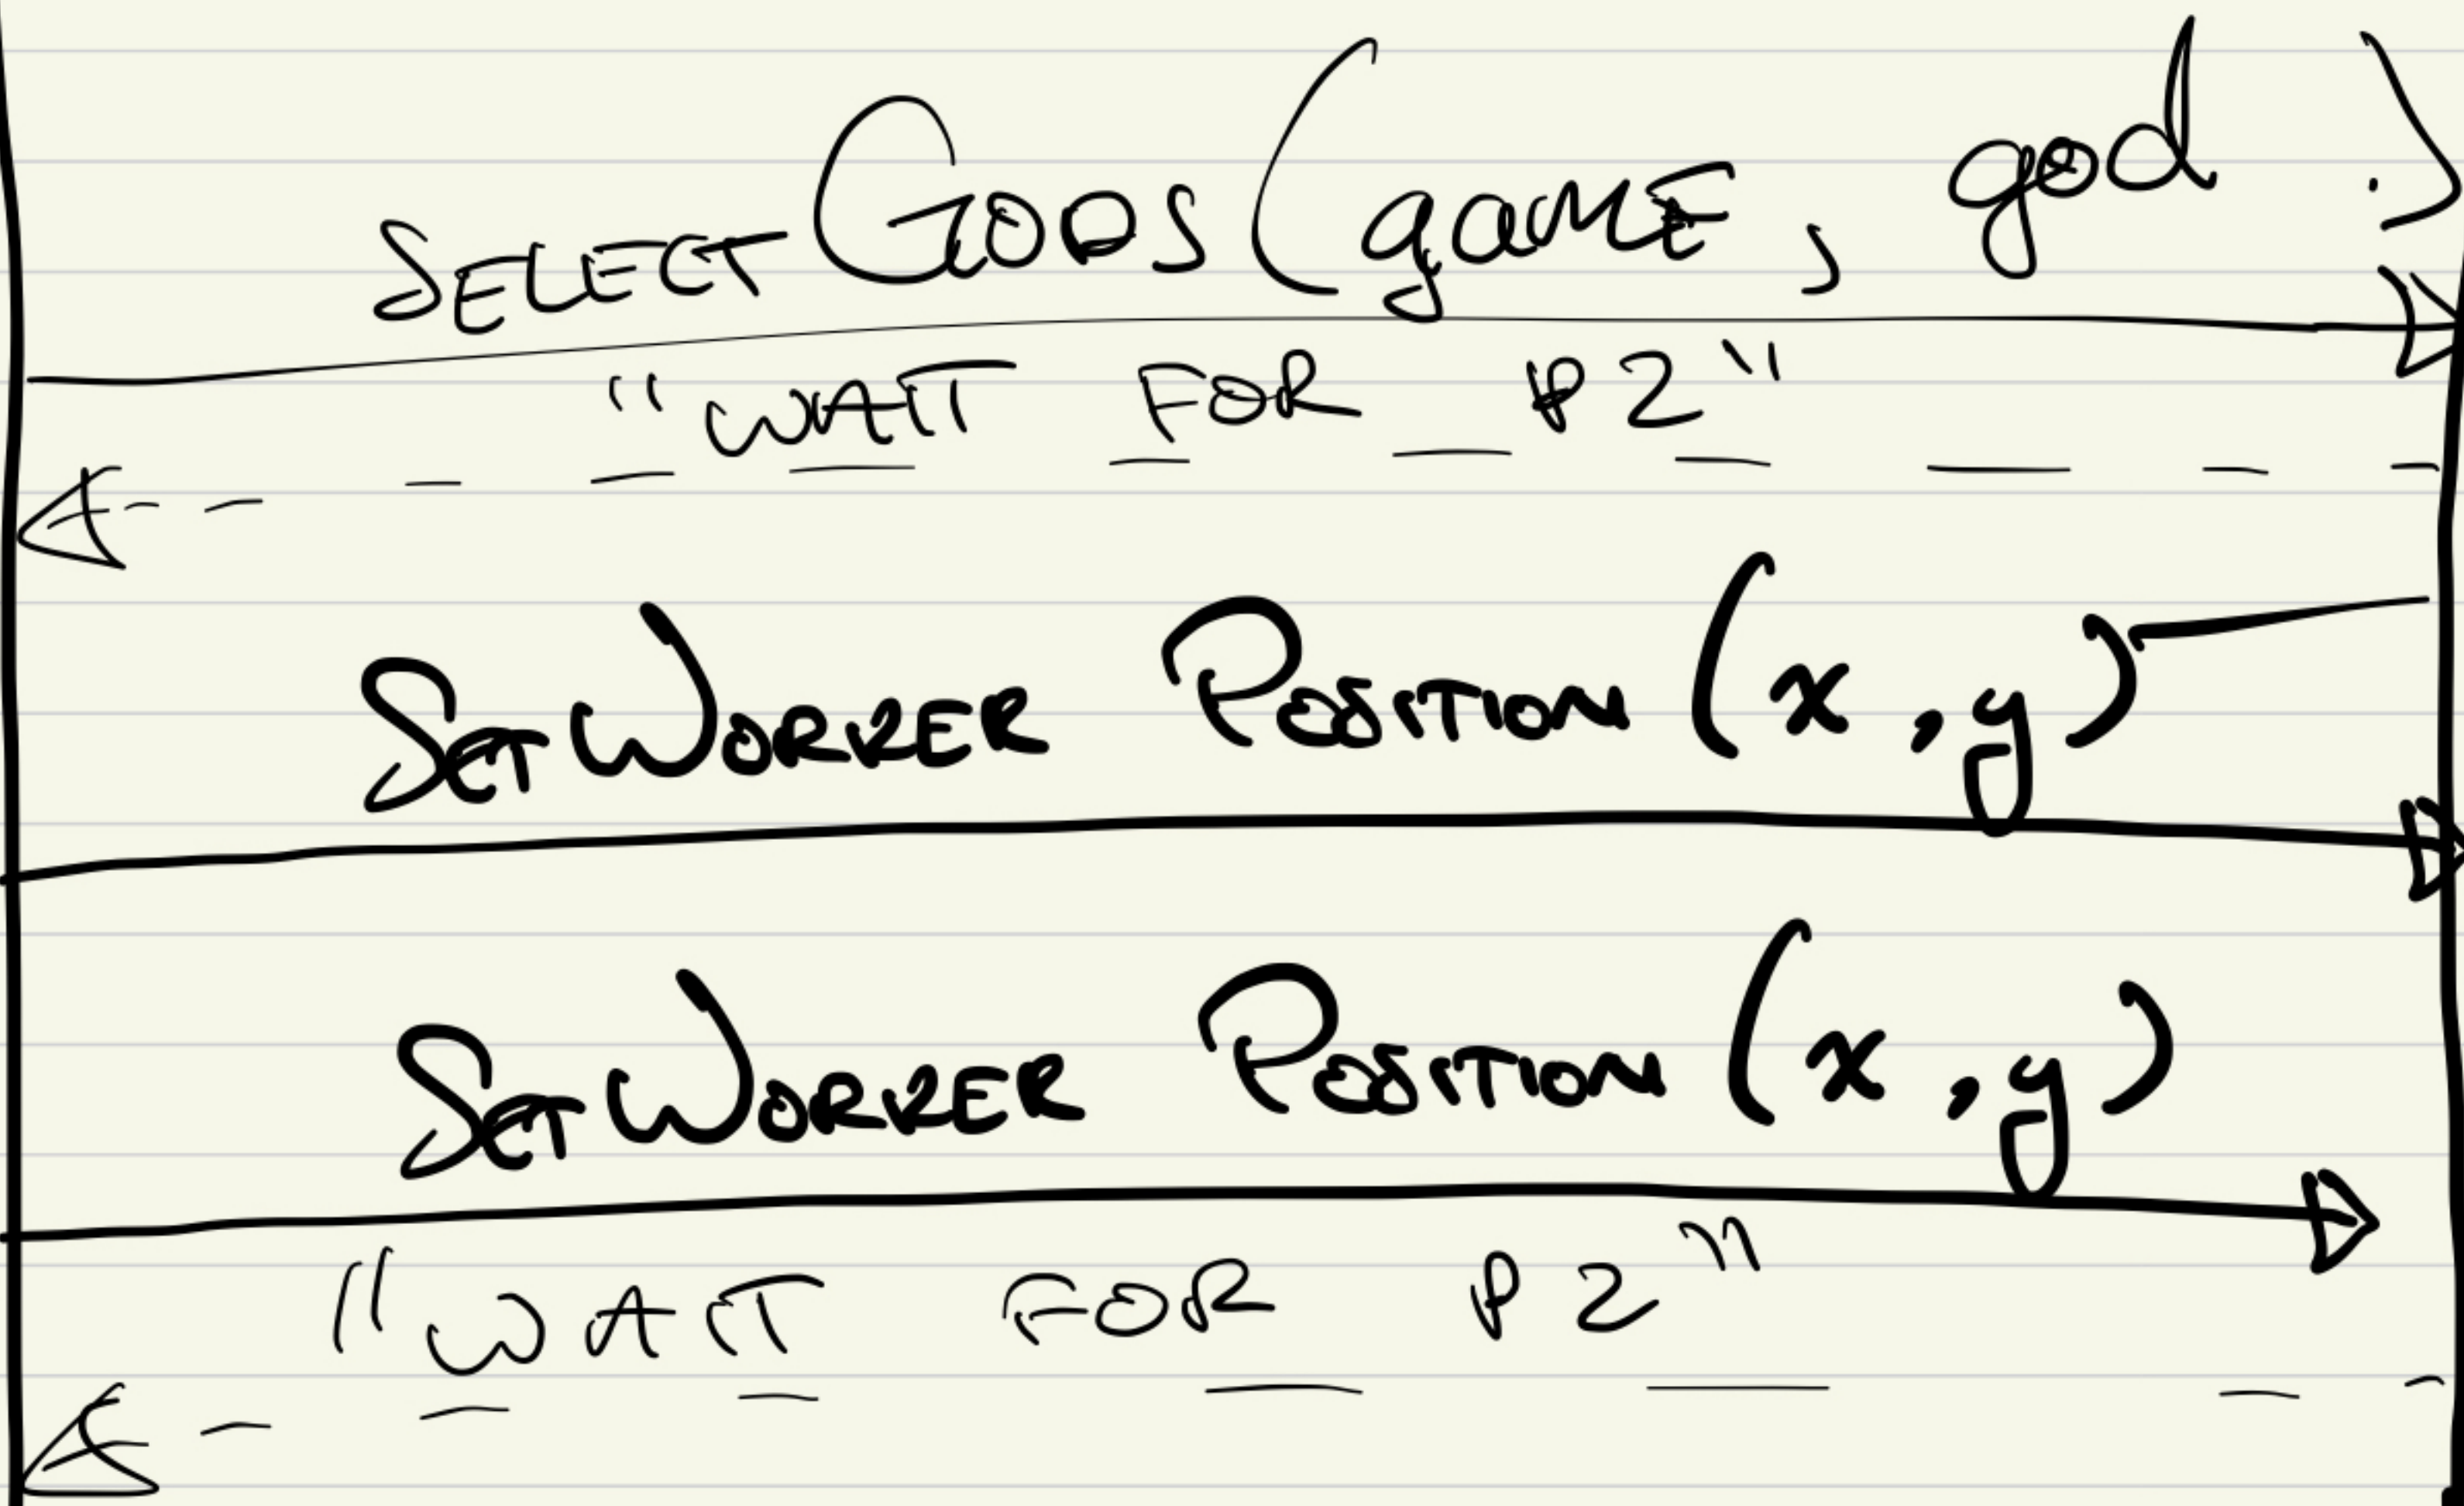 SELECT GODS (gaME, god .)
"WAIT FOR P2"
SET WORKER POSITION (x, y)
SET WORKER POSITION (x, y)
"WAIT FOR P2"